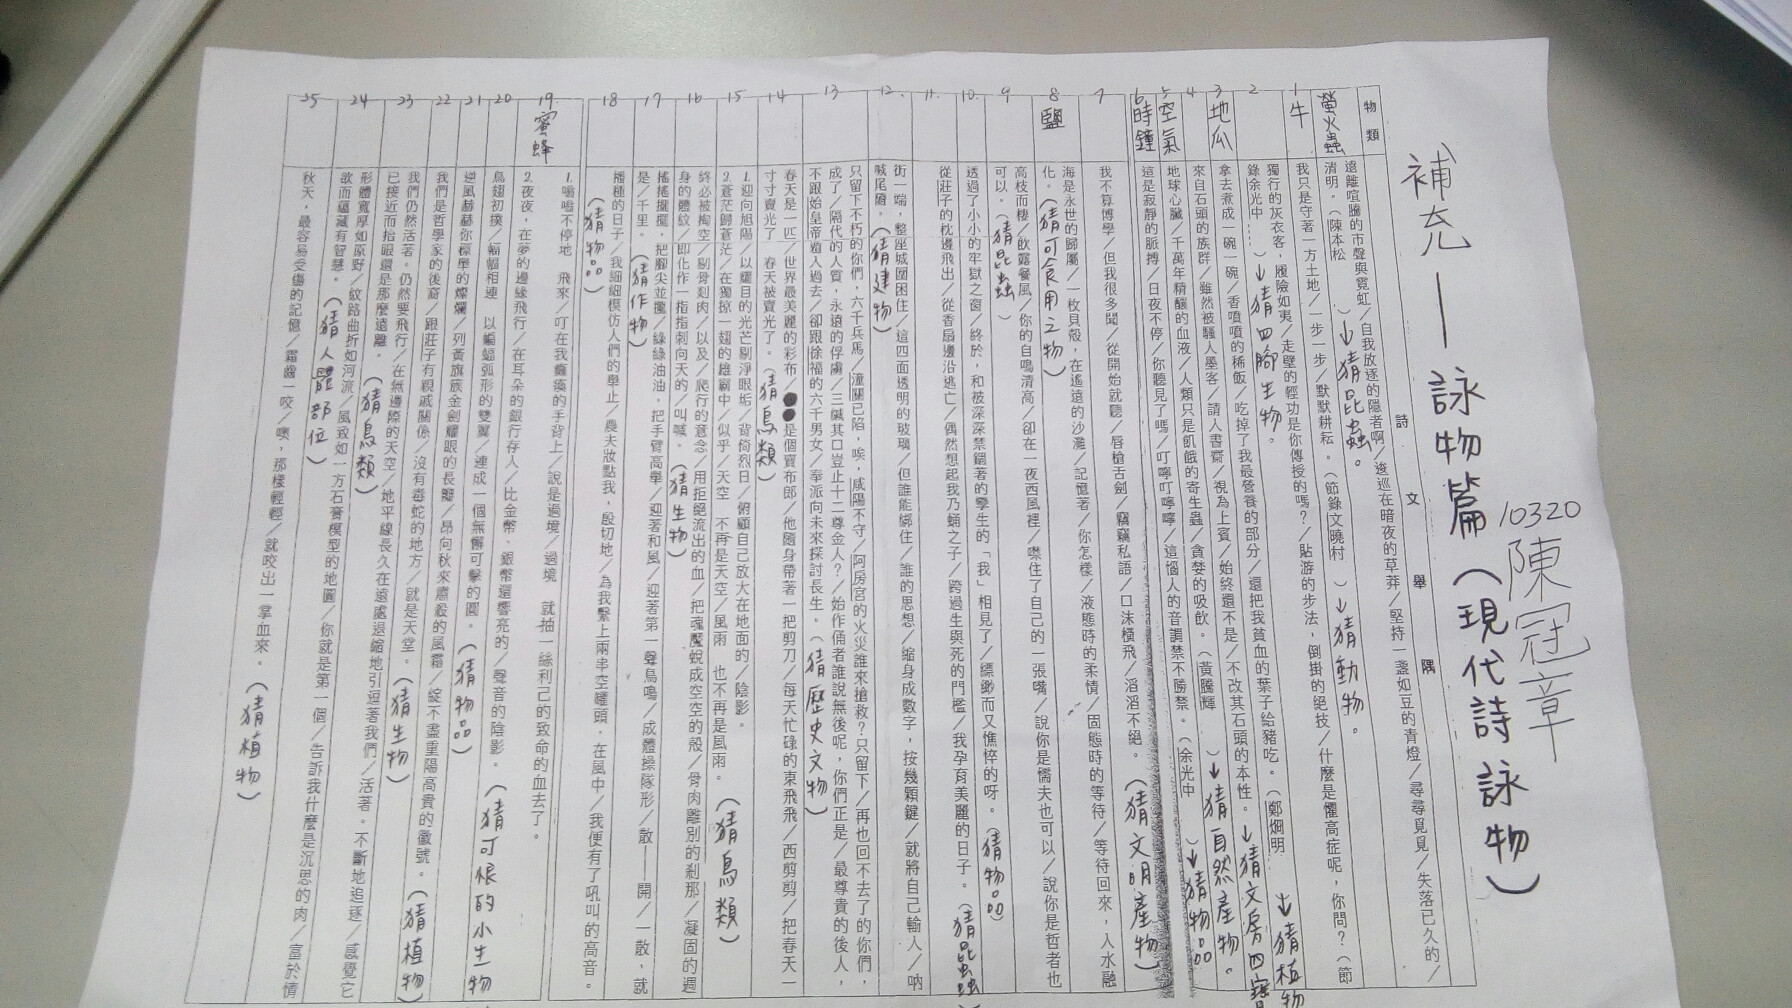 補充—詠物篇(現代詩詠物)
10320 陳冠章
物類
詩文舉隅
螢火蟲
遠離喧騰的市聲與霓虹/自我放逐的隱者啊/逡巡在暗夜的草莽/堅持一盞如豆的青燈/尋尋覓覓/失落已久的/
清明。(陳本松)↓猜昆蟲。
1 牛
我只是守著一方土地/一步一步/默默耕耘。(節錄文曉村)↓猜動物。
2
獨行的灰衣客,履險如夷/走壁的輕功是你傳授的嗎?/貼游的步法,倒掛的絕技/什麼是懼高症呢,你問?(節
錄余光中)↓猜四腳生物。
3 地瓜
拿去煮成一碗一碗/香噴噴的稀飯/吃掉了我最營養的部分/還把我貧血的葉子給豬吃。(鄭烱明)↓猜植物
4
來自石頭的族群/雖然被騷人墨客/請人書齋/視為上賓/始終還不是/不改其石頭的本性。↓猜文房四寶
5 空氣
地球心臟/千萬年精釀的血液/人類只是飢餓的寄生蟲/貪婪的吸飲。(黃騰輝)↓猜自然產物。
6 時鐘
這是寂靜的脈搏/日夜不停/你聽見了嗎/叮嚀叮嚀嚀/這惱人的音調禁不勝禁。(余光中)↓猜物品
7
我不算博學/但我很多聞/從開始就聽/唇槍舌劍/竊竊私語/口沫橫飛/滔滔不絕。(猜文明產物)
8 鹽
海是永世的歸屬/一枚貝殼,在遙遠的沙灘/記憶著/你怎樣/液態時的柔情/固態時的等待/等待回來,人水融
化。(猜可食用之物)
9
高枝而棲/飲露餐風/你的自鳴清高/卻在一夜西風裡/噤住了自己的一張嘴/說你是懦夫也可以/說你是哲者也
可以。(猜昆蟲)
10.
透過了小小的牢獄之窗/終於,和被深深禁錮著的孿生的「我」相見了/縹緲而又憔悴的呀。(猜物品)
11.
從莊子的枕邊飛出/從香扇邊沿逃亡/偶然想起我乃蛹之子/跨過生與死的門檻/我孕育美麗的日子。(猜昆蟲
12.
街一端,整座城圍困住/這四面透明的玻璃/但誰能綁住/誰的思想/縮身成數字,按幾顆鍵/就將自己輸人/吶
喊尾隨。(猜建物)
13
只留下不朽的你們,六千兵馬/潼關已陷,唉,咸陽不守/阿房宮的火災誰來搶救?只留下/再也回不去了的你們,
成了/隔代的人質,永遠的俘虜/三緘其口豈止十二尊金人?/始作俑者誰說無後呢,你們正是/最尊貴的後人,
不跟始皇帝遁人過去/卻跟徐福的六千男女/奉派向未來探討長生。(猜歷史文物)
14
春天是一匹/世界最美麗的彩布/是個賣布郎/他隨身帶著一把剪刀/每天忙碌的東飛飛/西剪剪/把春天一
寸寸賣光了 春天被賣光了。(猜鳥類)
15
1.迎向旭陽/以耀目的光芒剔淨眼垢/背倚烈日/俯顧自己放大在地面的/陰影。
2.蒼茫歸蒼茫/在獨掠一翅的雄霸中/似乎/天空 不再是天空/風雨 也不再是風雨。(猜鳥類)
16
終必被掏空/剔骨剡肉/以及/爬行的意念/用拒絕流出的血/把魂魘蛻成空空的殼/骨肉離別的剎那/凝固的週
身的體紋/即化作一指指刺向天的/叫喊。(猜生物)
17
搖搖擺擺,把腳尖並攏/綠綠油油,把手臂高舉/迎著和風/迎著第一聲鳥鳴/成體操隊形/散——開/一散,就
是/千里。(猜作物)
18
播種的日子/我細細模仿人們的舉止/農夫妝點我,殷切地/為我繫上兩串空罐頭,在風中/我便有了吼叫的高音。
(猜物品)
19. 蜜蜂
1.嗡嗡不停地 飛來/叮在我癱瘓的手背上/說是過境/過境 就抽一絲利己的致命的血去了。
2.夜夜,在夢的邊緣飛行/在耳朵的銀行存人/比金幣、銀幣還響亮的/聲音的陰影。(猜可恨的小生物
20
鳥翅初撲/幅幅相連 以蝙蝠弧形的雙翼/連成一個無懈可擊的圓。(猜物品)
21
逆風赫赫你標舉的燦爛/列黃旗簇金劍耀眼的長瓣/昂向秋來肅殺的風霜/綻不盡重陽高貴的徽號。(猜植物)
22
我們是哲學家的後裔/跟莊子有親戚關係/沒有毒蛇的地方/就是天堂。(猜生物)
23
我們仍然活著。仍然要飛行/在無邊際的天空/地平線長久在遠處退縮地引逗著我們/活著。不斷地追逐/感覺它
已接近而抬眼還是那麼遠離。(猜鳥類)
24
形體寬厚如原野/紋路曲折如河流/風致如一方石膏模型的地圖/你就是第一個/告訴我什麼是沉思的肉/富於情
欲而蘊藏有智慧。(猜人體部位)
25
秋天,最容易受傷的記憶/霜齒一咬/噢,那樣輕輕/就咬出一掌血來。(猜植物)